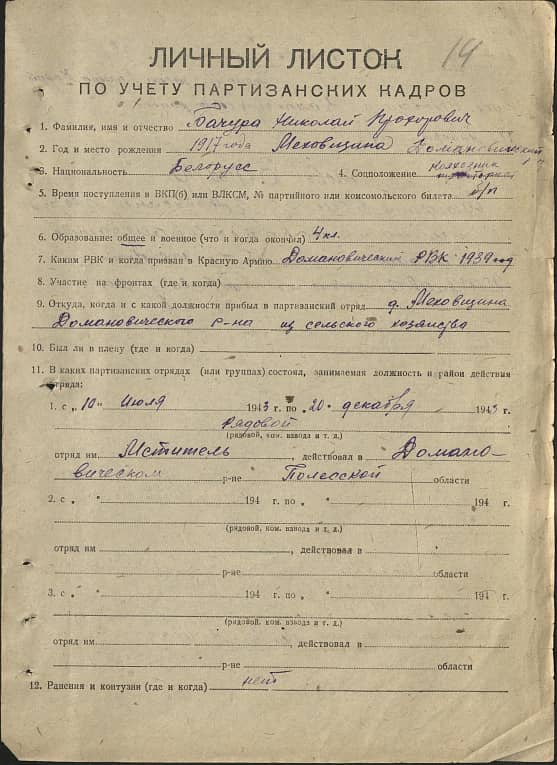 14
ЛИЧНЫЙ ЛИСТОК
ПО УЧЕТУ ПАРТИЗАНСКИХ КАДРОВ
1. Фамилия, имя и отчество Бачура Николай Прохорович
2. Год и место рождения 1917 года Меховщина Домановичский
3. Национальность Белорусс 4. Соцположение колхозник
5. Время поступления в ВКП(б) или ВЛКСМ, № партийного или комсомольского билета б/п
6. Образование: общее и военное (что и когда окончил) 4 кл.
7. Каким РВК и когда призван в Красную Армию Домановическим РВК 1939 год
8. Участие на фронтах (где и когда)
9. Откуда, когда и с какой должности прибыл в партизанский отряд д. Меховщина
Домановического р-на из сельского хозяйства
10. Был ли в плену (где и когда)
11. В каких партизанских отрядах (или группах) состоял, занимаемая должность и район действия
отряда:
1. с „10" Июля 1943 г. по „20" декабря 1943 г.
Рядовой
(рядовой, ком. взвода и т. д.)
отряд им. Мститель, действовал в Домано-
вическом р-не Полесской области
2. с „ " 194 г. по „ " 194 г.
(рядовой, ком. взвода и т. д.)
отряд им , действовал в
р-не области
3. с „ " 194 г. по „ " 194 г.
(рядовой, ком. взвода и т. д.)
отряд им. , действовал в
р-не области
12. Ранения и контузии (где и когда) нет